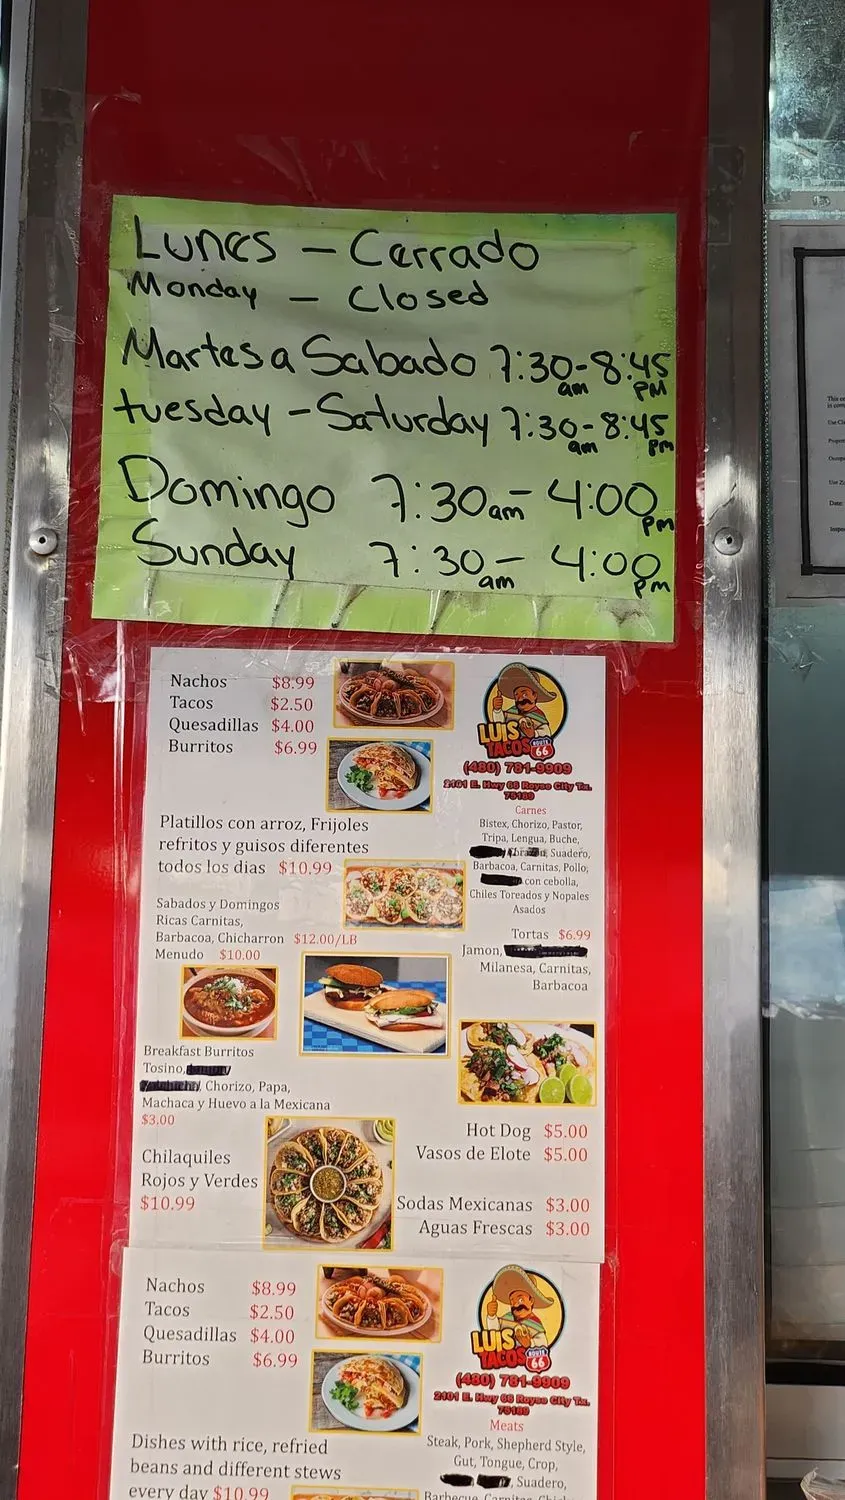 Lunes - Cerrado
Monday - Closed
Martes a Sabado 7:30am-8:45PM
tuesday - Saturday 7:30am-8:45pm
Domingo 7:30am - 4:00pm
Sunday 7:30am - 4:00pm
Nachos $8.99
Tacos $2.50
Quesadillas $4.00
Burritos $6.99
LUIS
TACOS ROUTE 66
(480) 781-9909
2101 E. Hwy 66 Royse City Tx.
75189
Platillos con arroz, Frijoles
refritos y guisos diferentes
todos los dias $10.99
Carnes
Bistex, Chorizo, Pastor,
Tripa, Lengua, Buche,
Suadero,
Barbacoa, Carnitas, Pollo,
con cebolla,
Chiles Toreados y Nopales
Asados
Sabados y Domingos
Ricas Carnitas,
Barbacoa, Chicharron $12.00/LB
Menudo $10.00
Tortas $6.99
Jamon,
Milanesa, Carnitas,
Barbacoa
Breakfast Burritos
Tosino,
Chorizo, Papa,
Machaca y Huevo a la Mexicana
$3.00
Hot Dog $5.00
Vasos de Elote $5.00
Chilaquiles
Rojos y Verdes
$10.99
Sodas Mexicanas $3.00
Aguas Frescas $3.00
Nachos $8.99
Tacos $2.50
Quesadillas $4.00
Burritos $6.99
LUIS
TACOS ROUTE 66
(480) 781-9909
2101 E. Hwy 66 Royse City Tx.
75189
Dishes with rice, refried
beans and different stews
every day $10.99
Meats
Steak, Pork, Shepherd Style,
Gut, Tongue, Crop,
, Suadero,
Date: